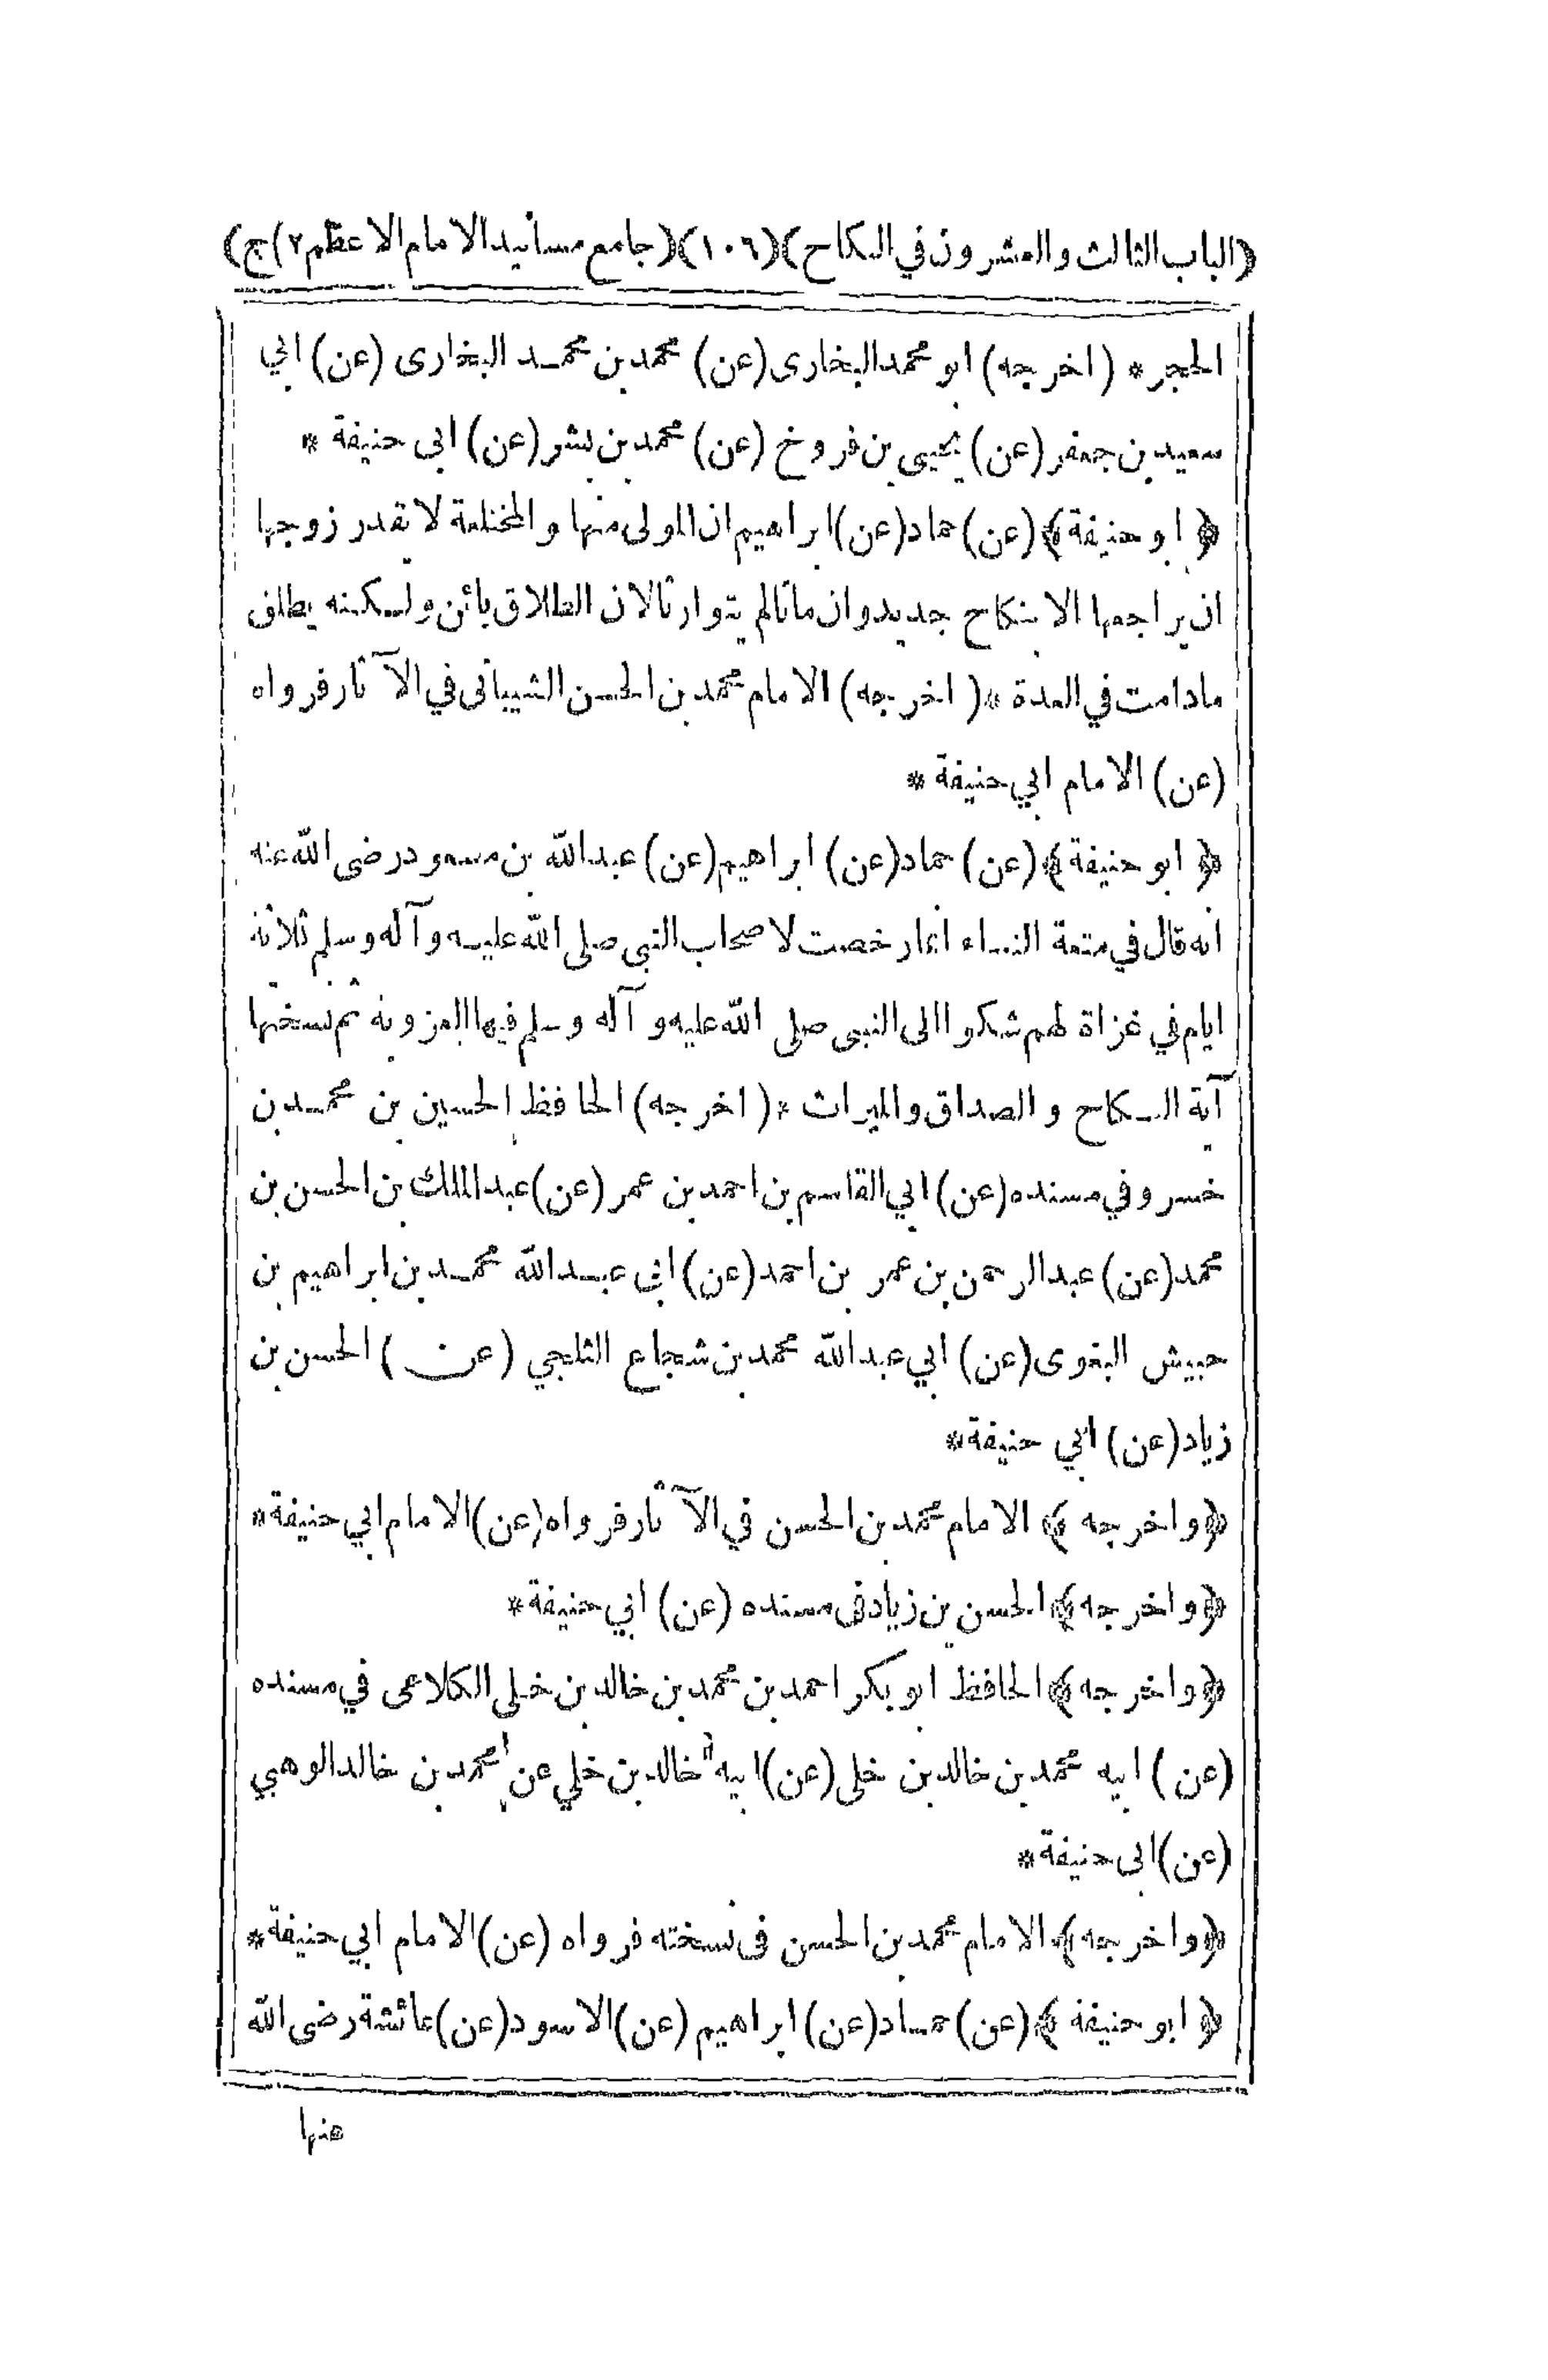 (الباب الثالث والعشرون في النكاح) (١٠٦) (جامع مسانيد الامام الاعظم ٢) ج)
الحجر * (اخرجه) ابو محمد البخارى (عن) محمد بن محمد البخارى (عن) ابي
سعيد بن جعفر (عن) يحيى بن فروخ (عن) محمد بن بشر (عن) ابى حنيفة *
﴿ ابو حنيفة ﴾ (عن) حماد (عن) ابراهيم ان المولى منها والمختلعة لا تقدر زوجها
ان يراجعها الا بنكاح جديد وان ماتا لم يتوارثا لان الطلاق بائن ولكنه يطلق
مادامت في العدة * (اخرجه) الامام محمد بن الحسن الشيبانى في الآثار فرواه
(عن) الامام ابي حنيفة *
﴿ ابو حنيفة ﴾ (عن) حماد (عن) ابراهيم (عن) عبدالله بن مسعود رضى الله عنه
انه قال في متعة النساء انما رخصت لاصحاب النبى صلى الله عليه وآله وسلم ثلاثة
ايام في غزاة لهم شكوا الى النبى صلى الله عليه وآله وسلم فيها العزوبة ثم نسختها
آية النكاح والصداق والميراث * (اخرجه) الحافظ الحسين بن محمد بن
خسرو في مسنده (عن) ابي القاسم بن احمد بن عمر (عن) عبدالملك بن الحسن بن
محمد (عن) عبدالرحمن بن عمر بن احمد (عن) ابى عبدالله محمد بن ابراهيم بن
حبيش البغوى (عن) ابي عبدالله محمد بن شجاع الثلجي (عن) الحسن بن
زياد (عن) ابي حنيفة *
﴿ واخرجه ﴾ الامام محمد بن الحسن في الآثار فرواه (عن) الامام ابي حنيفة *
﴿ واخرجه ﴾ الحسن بن زياد فى مسنده (عن) ابي حنيفة *
﴿ واخرجه ﴾ الحافظ ابو بكر احمد بن محمد بن خالد بن خلى الكلاعى في مسنده
(عن) ابيه محمد بن خالد بن خلى (عن) ابيه خالد بن خلي عن محمد بن خالد الوهبي
(عن) ابى حنيفة *
﴿ واخرجه ﴾ الامام محمد بن الحسن فى نسخته فرواه (عن) الامام ابي حنيفة *
﴿ ابو حنيفة ﴾ (عن) حماد (عن) ابراهيم (عن) الاسود (عن) عائشة رضى الله
عنها